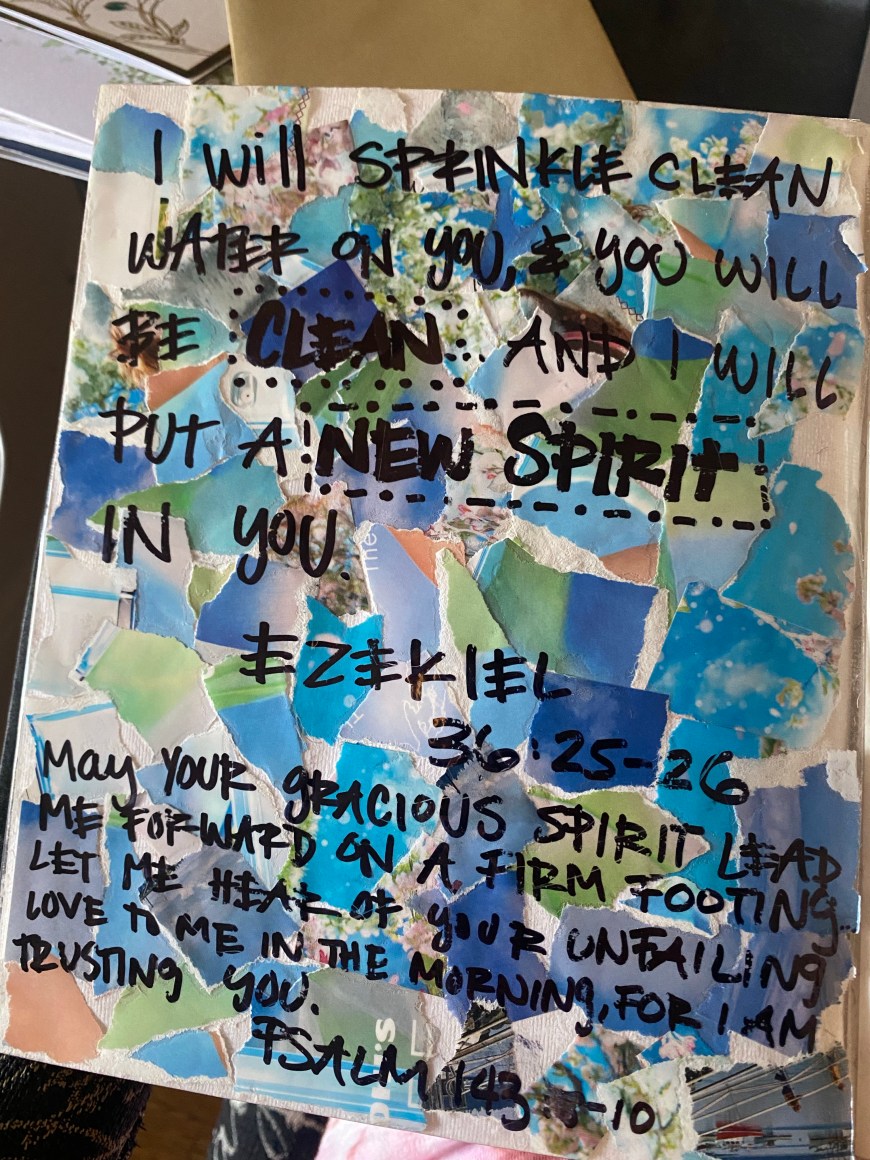 I Will SPRINKLE CLEAN
WATER ON YOU, & YOU WILL
BE CLEAN. AND I WILL
PUT A NEW SPIRIT
IN YOU.
The
EZEKIEL
36:25-26
May YOUR GRACIOUS SPIRIT LEAD
ME FORWARD ON A FIRM FOOTING.
LET ME HEAR OF YOUR UNFAILING
LOVE TO ME IN THE MORNING, FOR I AM
TRUSTING YOU.
PSALM 143: -10